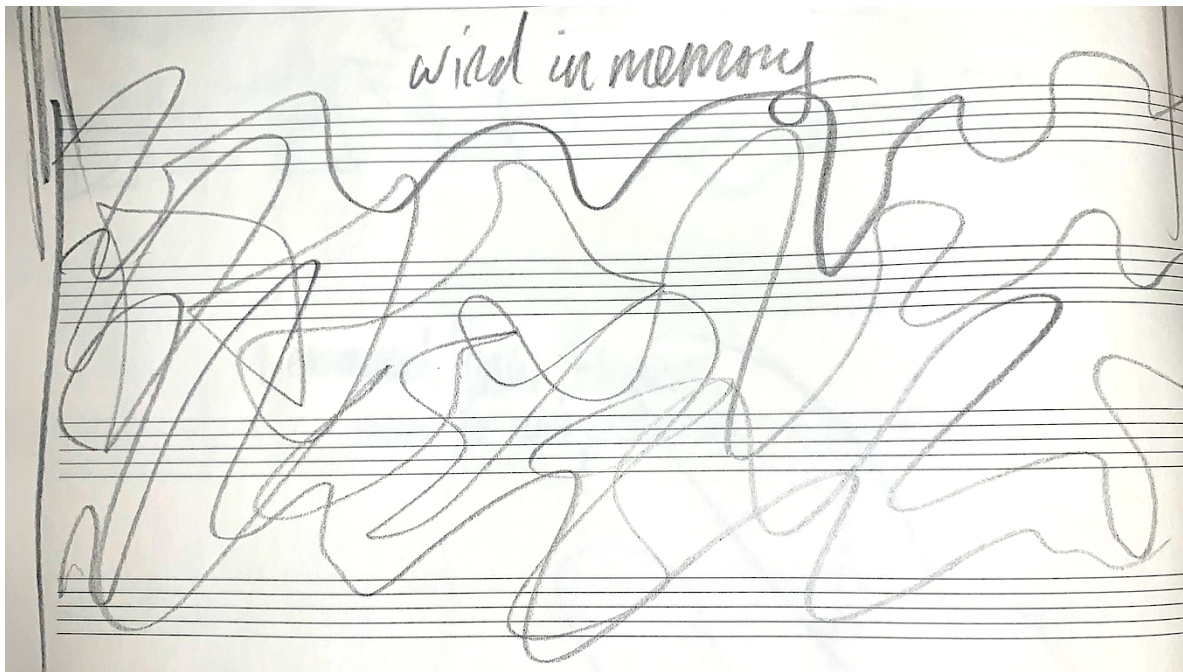 wind in memory